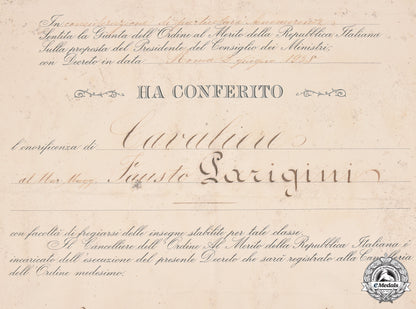 In considerazione di particolari benemerenze
Sentita la Giunta dell'Ordine al Merito della Repubblica Italiana
Sulla proposta del Presidente del Consiglio dei Ministri;
con Decreto in data Roma 2 giugno
HA CONFERITO
l'onorificenza di Cavaliere
al Fausto Parigini
con facoltà di fregiarsi delle insegne stabilite per tale classe.
Il Cancelliere dell'Ordine Al Merito della Repubblica Italiana è
incaricato dell'esecuzione del presente Decreto che sarà registrato alla Cancelleria
dell'Ordine medesimo;
eMedals